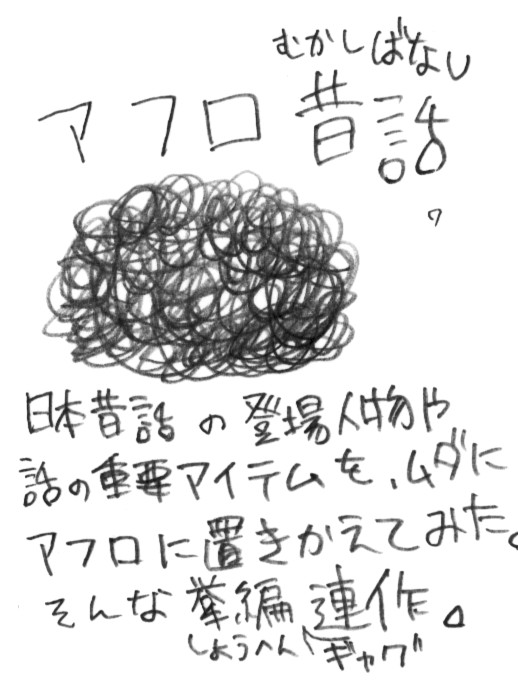 むかしばなし
アフロ昔話
日本昔話の登場人物や
話の重要アイテムを、ムダに
アフロに置きかえてみた。
そんな掌編連作。
しょうへん ギャグ